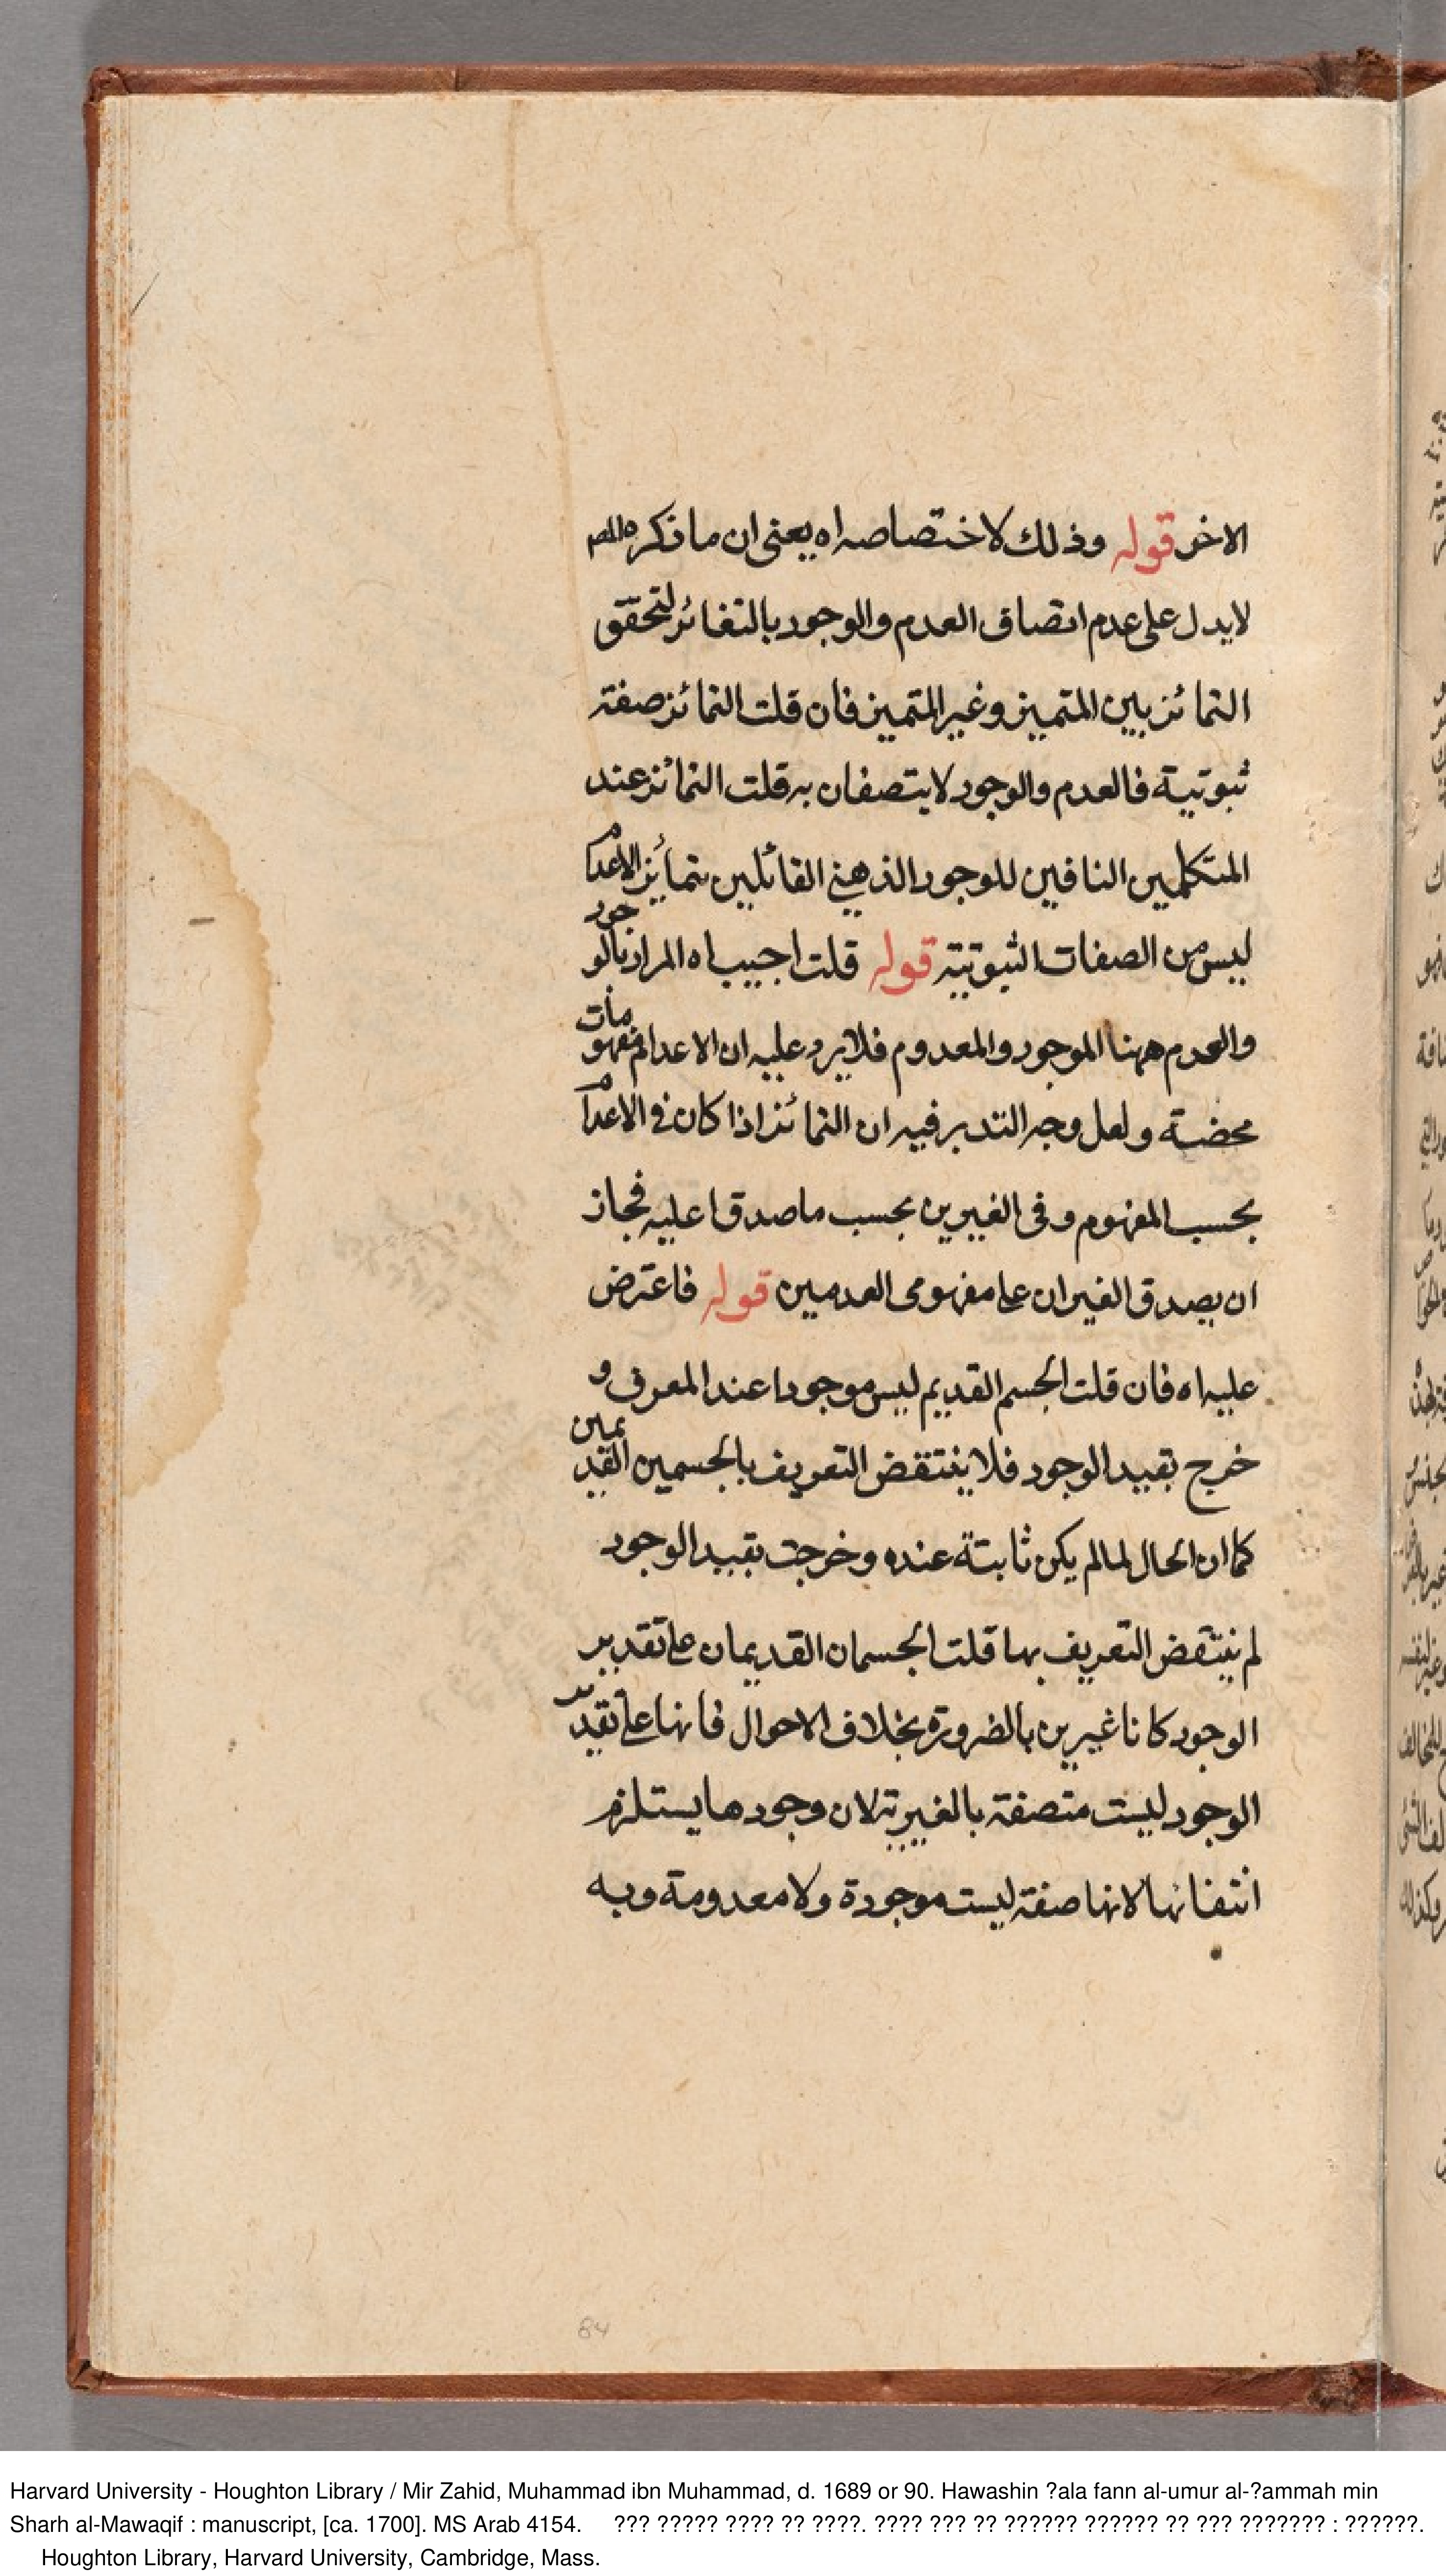 الاخر قوله وذلك لاختصاصه اه يعنى ان ما ذكره المص
لا يدل على عدم اتصاف العدم والوجود بالتغائر لتحقق
التمائز بين المتميز وغير المتميز فان قلت التمائز صفة
ثبوتية فالعدم والوجود لا يتصفان به قلت التمائز عند
المتكلمين النافين للوجود الذهني القائلين بتمائز الاعدام
ليس من الصفات الثبوتية قوله قلت اجيب اه المراد بالوجود
والعدم ههنا الموجود والمعدوم فلا يرد عليه ان الاعدام مفهومات
محضة ولعل وجه التدبر فيه ان التمائز اذا كان في الاعدام
بحسب المفهوم وفى الغيرين بحسب ما صدقا عليه فجاز
ان يصدق الغيران على مفهومى العدمين قوله فاعترض
عليه اه فان قلت الجسم القديم ليس موجودا عند المعرف و
خرج بقيد الوجود فلا ينتقض التعريف بالجسمين القديمين
كما ان الحال لما لم يكن ثابتة عنده وخرجت بقيد الوجود
لم ينتقض التعريف بها قلت الجسمان القديمان على تقدير
الوجود كانا غيرين بالضرورة بخلاف الاحوال فانها على تقدير
الوجود ليست متصفة بالغيرية لان وجودها يستلزم
انتفائها لانها صفة ليست موجودة ولا معدومة وبه
84
Harvard University - Houghton Library / Mir Zahid, Muhammad ibn Muhammad, d. 1689 or 90. Hawashin ?ala fann al-umur al-?ammah min
Sharh al-Mawaqif : manuscript, [ca. 1700]. MS Arab 4154. ??? ????? ???? ?? ????. ???? ??? ?? ?????? ?????? ?? ??? ??????? : ??????.
Houghton Library, Harvard University, Cambridge, Mass.